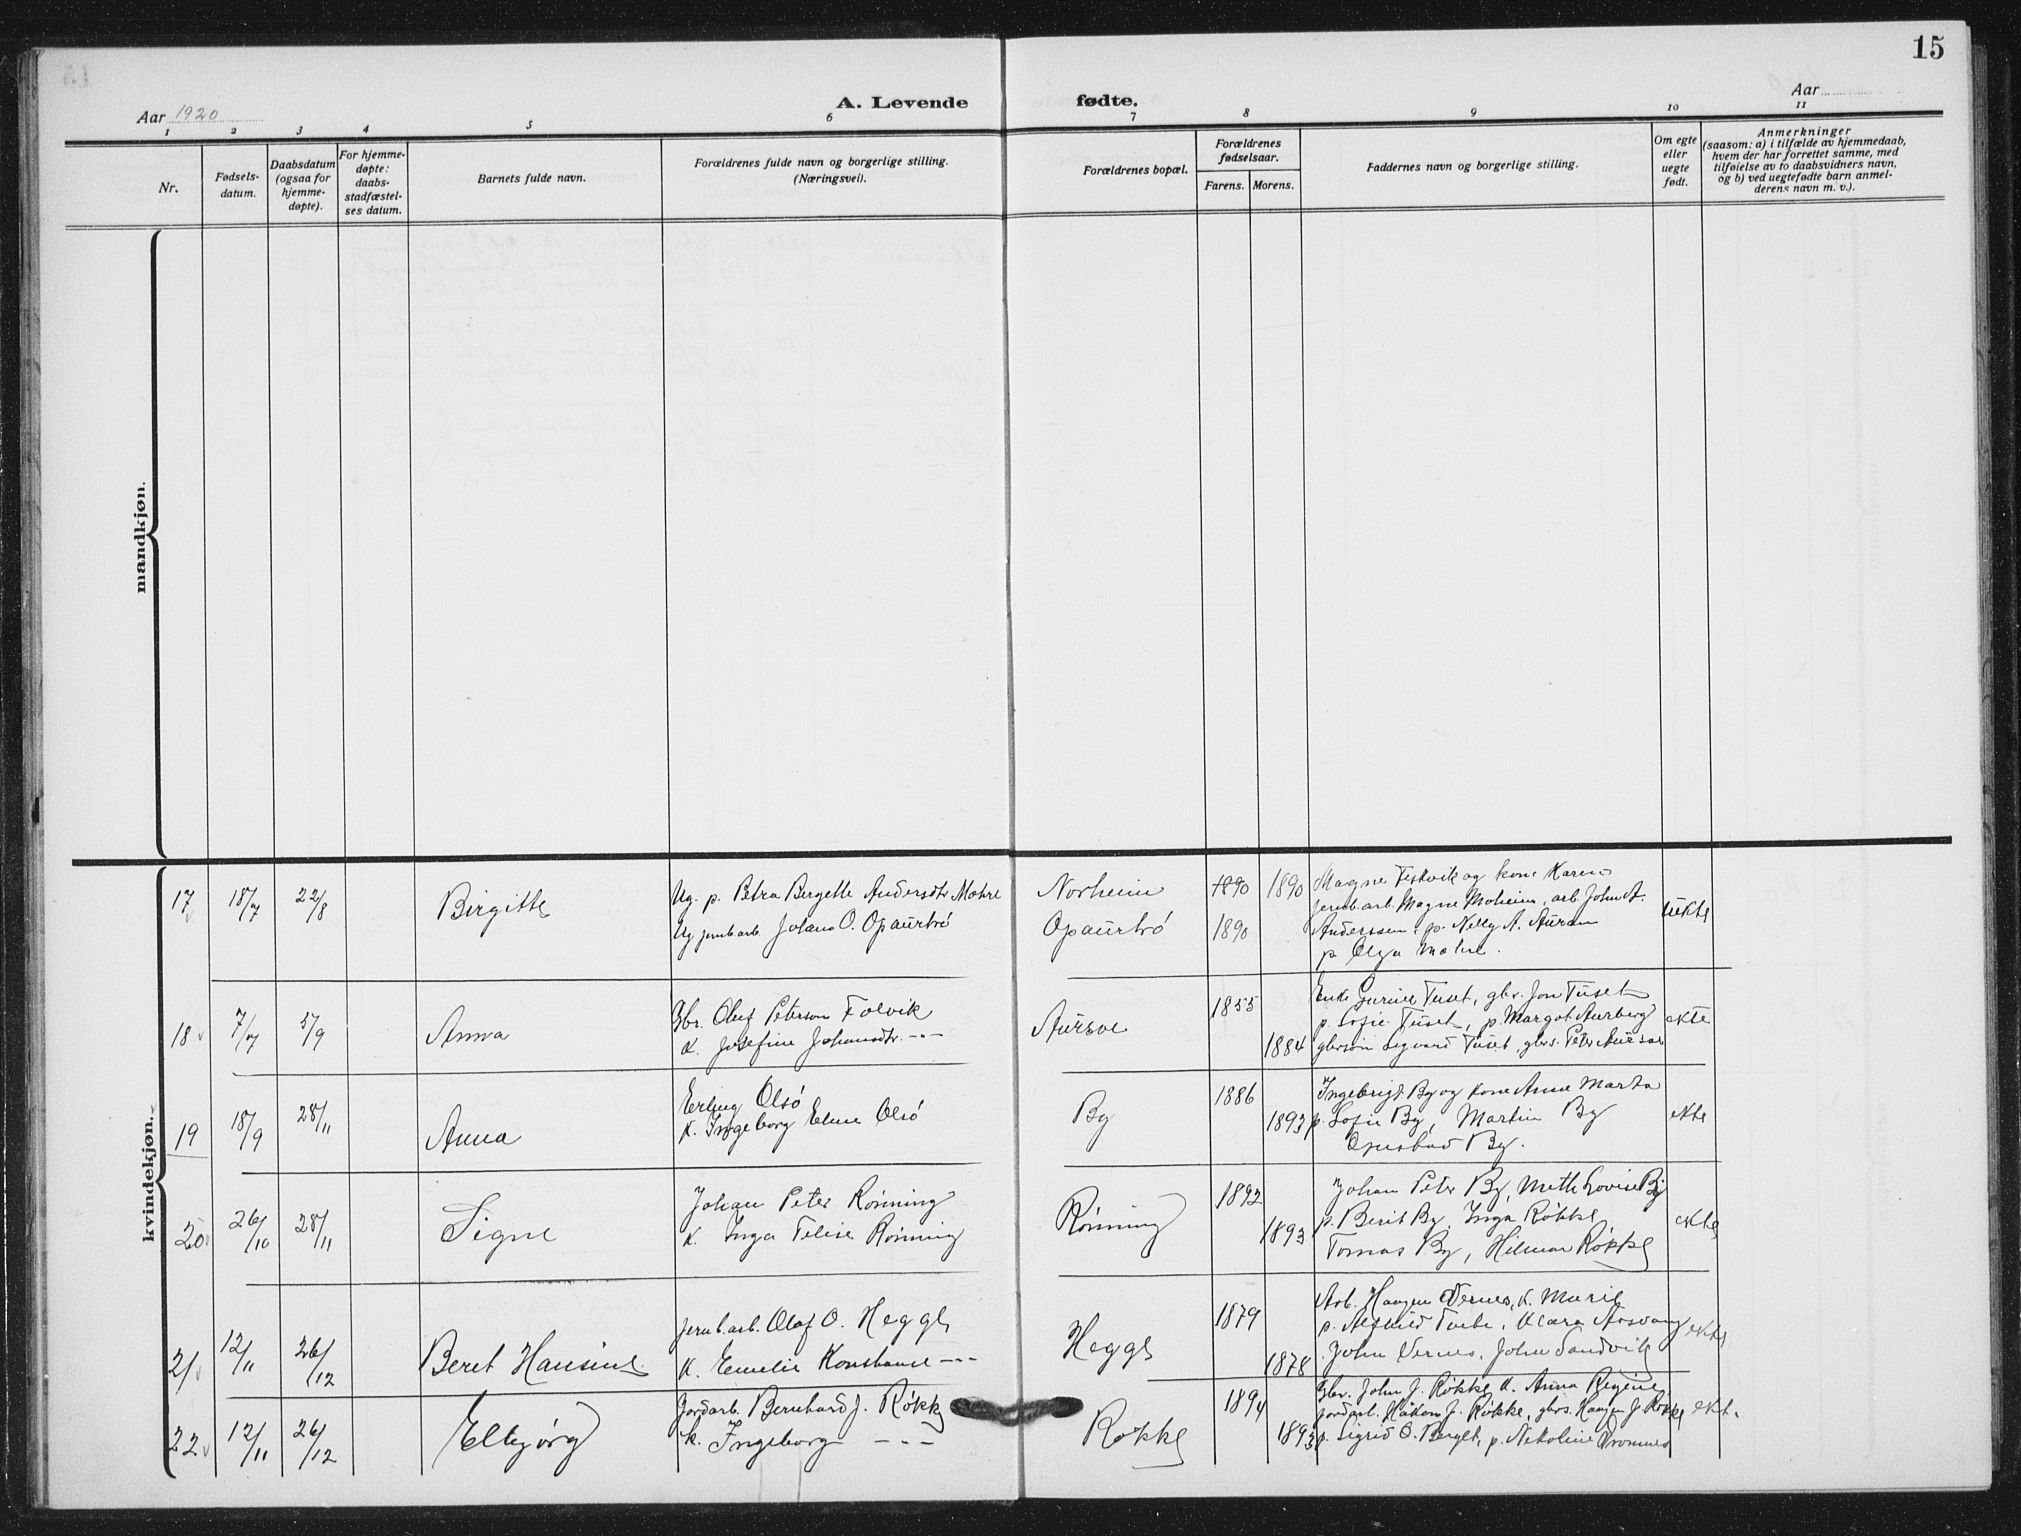 15
Aar 1920
A. Levende fødte.
Aar
1 2 3 4 5 6 7 8 9 10 11
Nr.
Fødsels-
datum.
Daabsdatum
(ogsaa for
hjemme-
døpte).
For hjemme-
døpte:
daabs-
stadfæstel-
ses datum.
Barnets fulde navn.
Forældrenes fulde navn og borgerlige stilling.
(Næringsvei).
Forældrenes bopæl.
Forældrenes
fødselsaar.
Farens. Morens.
Faddernes navn og borgerlige stilling.
Om egte
eller
uegte
født.
Anmerkninger
(saasom: a) i tilfælde av hjemmedaab,
hvem der har forrettet samme, med
tilføielse av to daabsvidners navn,
og b) ved uegtefødte barn anmel-
derens navn m. v.).
mandkjøn.
kvindekjøn.
17 18/7 22/8 Birgitte
Ug. p. Petra Bergette Andersdtr. Mohre
Ug jernb.arb. Johans O. Opaurbrö
Norheim
Opaurbrö
1890 1890
1890
Magne Fiskvik og kone Karen
jernb.arb. Magne Moheim, arb. John A.
Anderssen, p. Nelly A. Auran
p. Olga Mohre.
uekte
18 7/7 5/9 Anna
Gbr. Oluf Peterson Folvik
K. Josefine Johansdtr. - - -
Aursve
1855
1884
Enke Gurine Tuset, gbr. Jon Tuset
p. Sofie Tuset, p. Margot Aurberg
gbrsön Sigvard Tuset, gbrs. Peter Aursve
ekte
19 18/9 28/11 Anna
Erling Olsö
K. Ingeborg Eline Olsö
By
1886
1893
Ingebrigt By og kone Anne Marta
p. Sofie By, Martin By
By.
ekte
20 26/10 28/11 Signe
Johan Peter Rönning
K. Inga Rönning
Rönning
1892
1893
Johan Peter By, Mette Lovise By
p. Berit By, Inga Røkke
Tomas By, Hilmar Røkke
ekte
21 12/11 26/12 Beret Hansine
jernb.arb. Olaf O. Hegge
K. Emelie Konstanse - - -
Hegge
1879
1878
Arb. Haagen Vernes, K. Marie
p. Alfhild Klara Aasvang
John Vernes, John Sandvik
ekte
22 12/11 26/12 Elbjørg
Jordarb. Bernhard J. Røkke
K. Ingeborg - - -
Røkke
1894
1893
Gbr. John J. Røkke, K. Anna Regine
jordarb. Håkon J. Røkke, gbrs. Haagen J. Røkke
p. Sigrid O. Berget, p. Nikoline Kromnes
ekt.